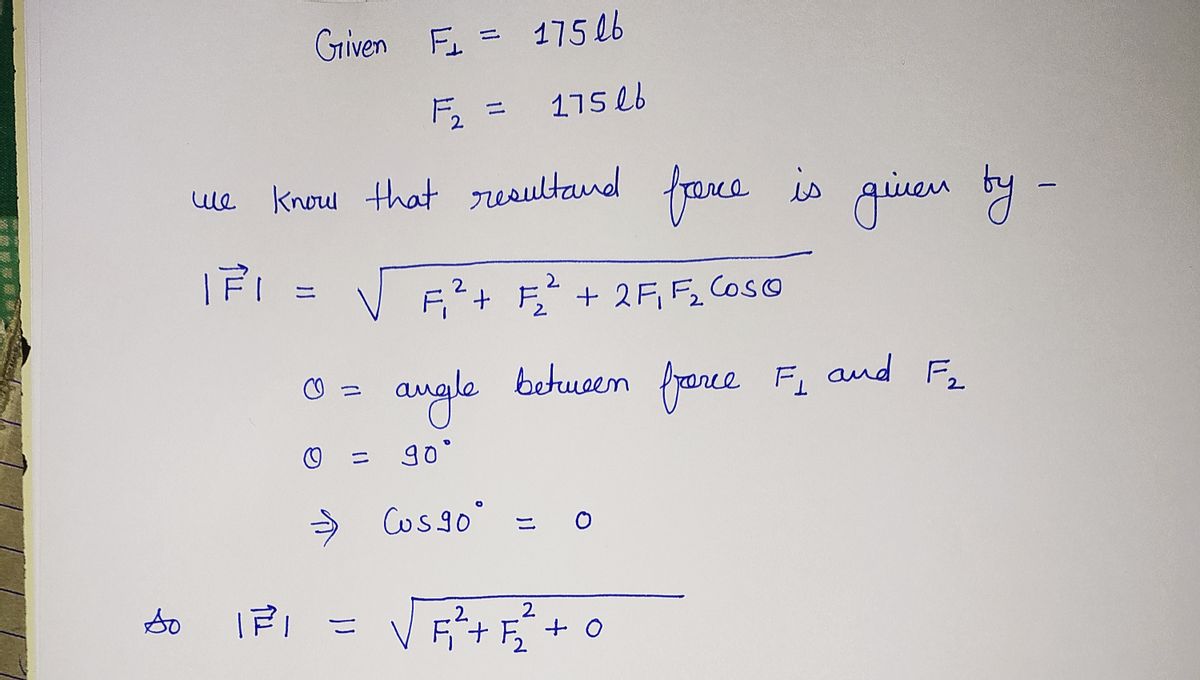 Given F₁ = 175 lb
F₂ = 175 lb
we know that resultand force is given by -
|F⃗| = √(F₁² + F₂² + 2F₁F₂ Cosθ)
θ = angle between force F₁ and F₂
θ = 90°
⇒ Cos90° = 0
So |F⃗| = √(F₁² + F₂² + 0)